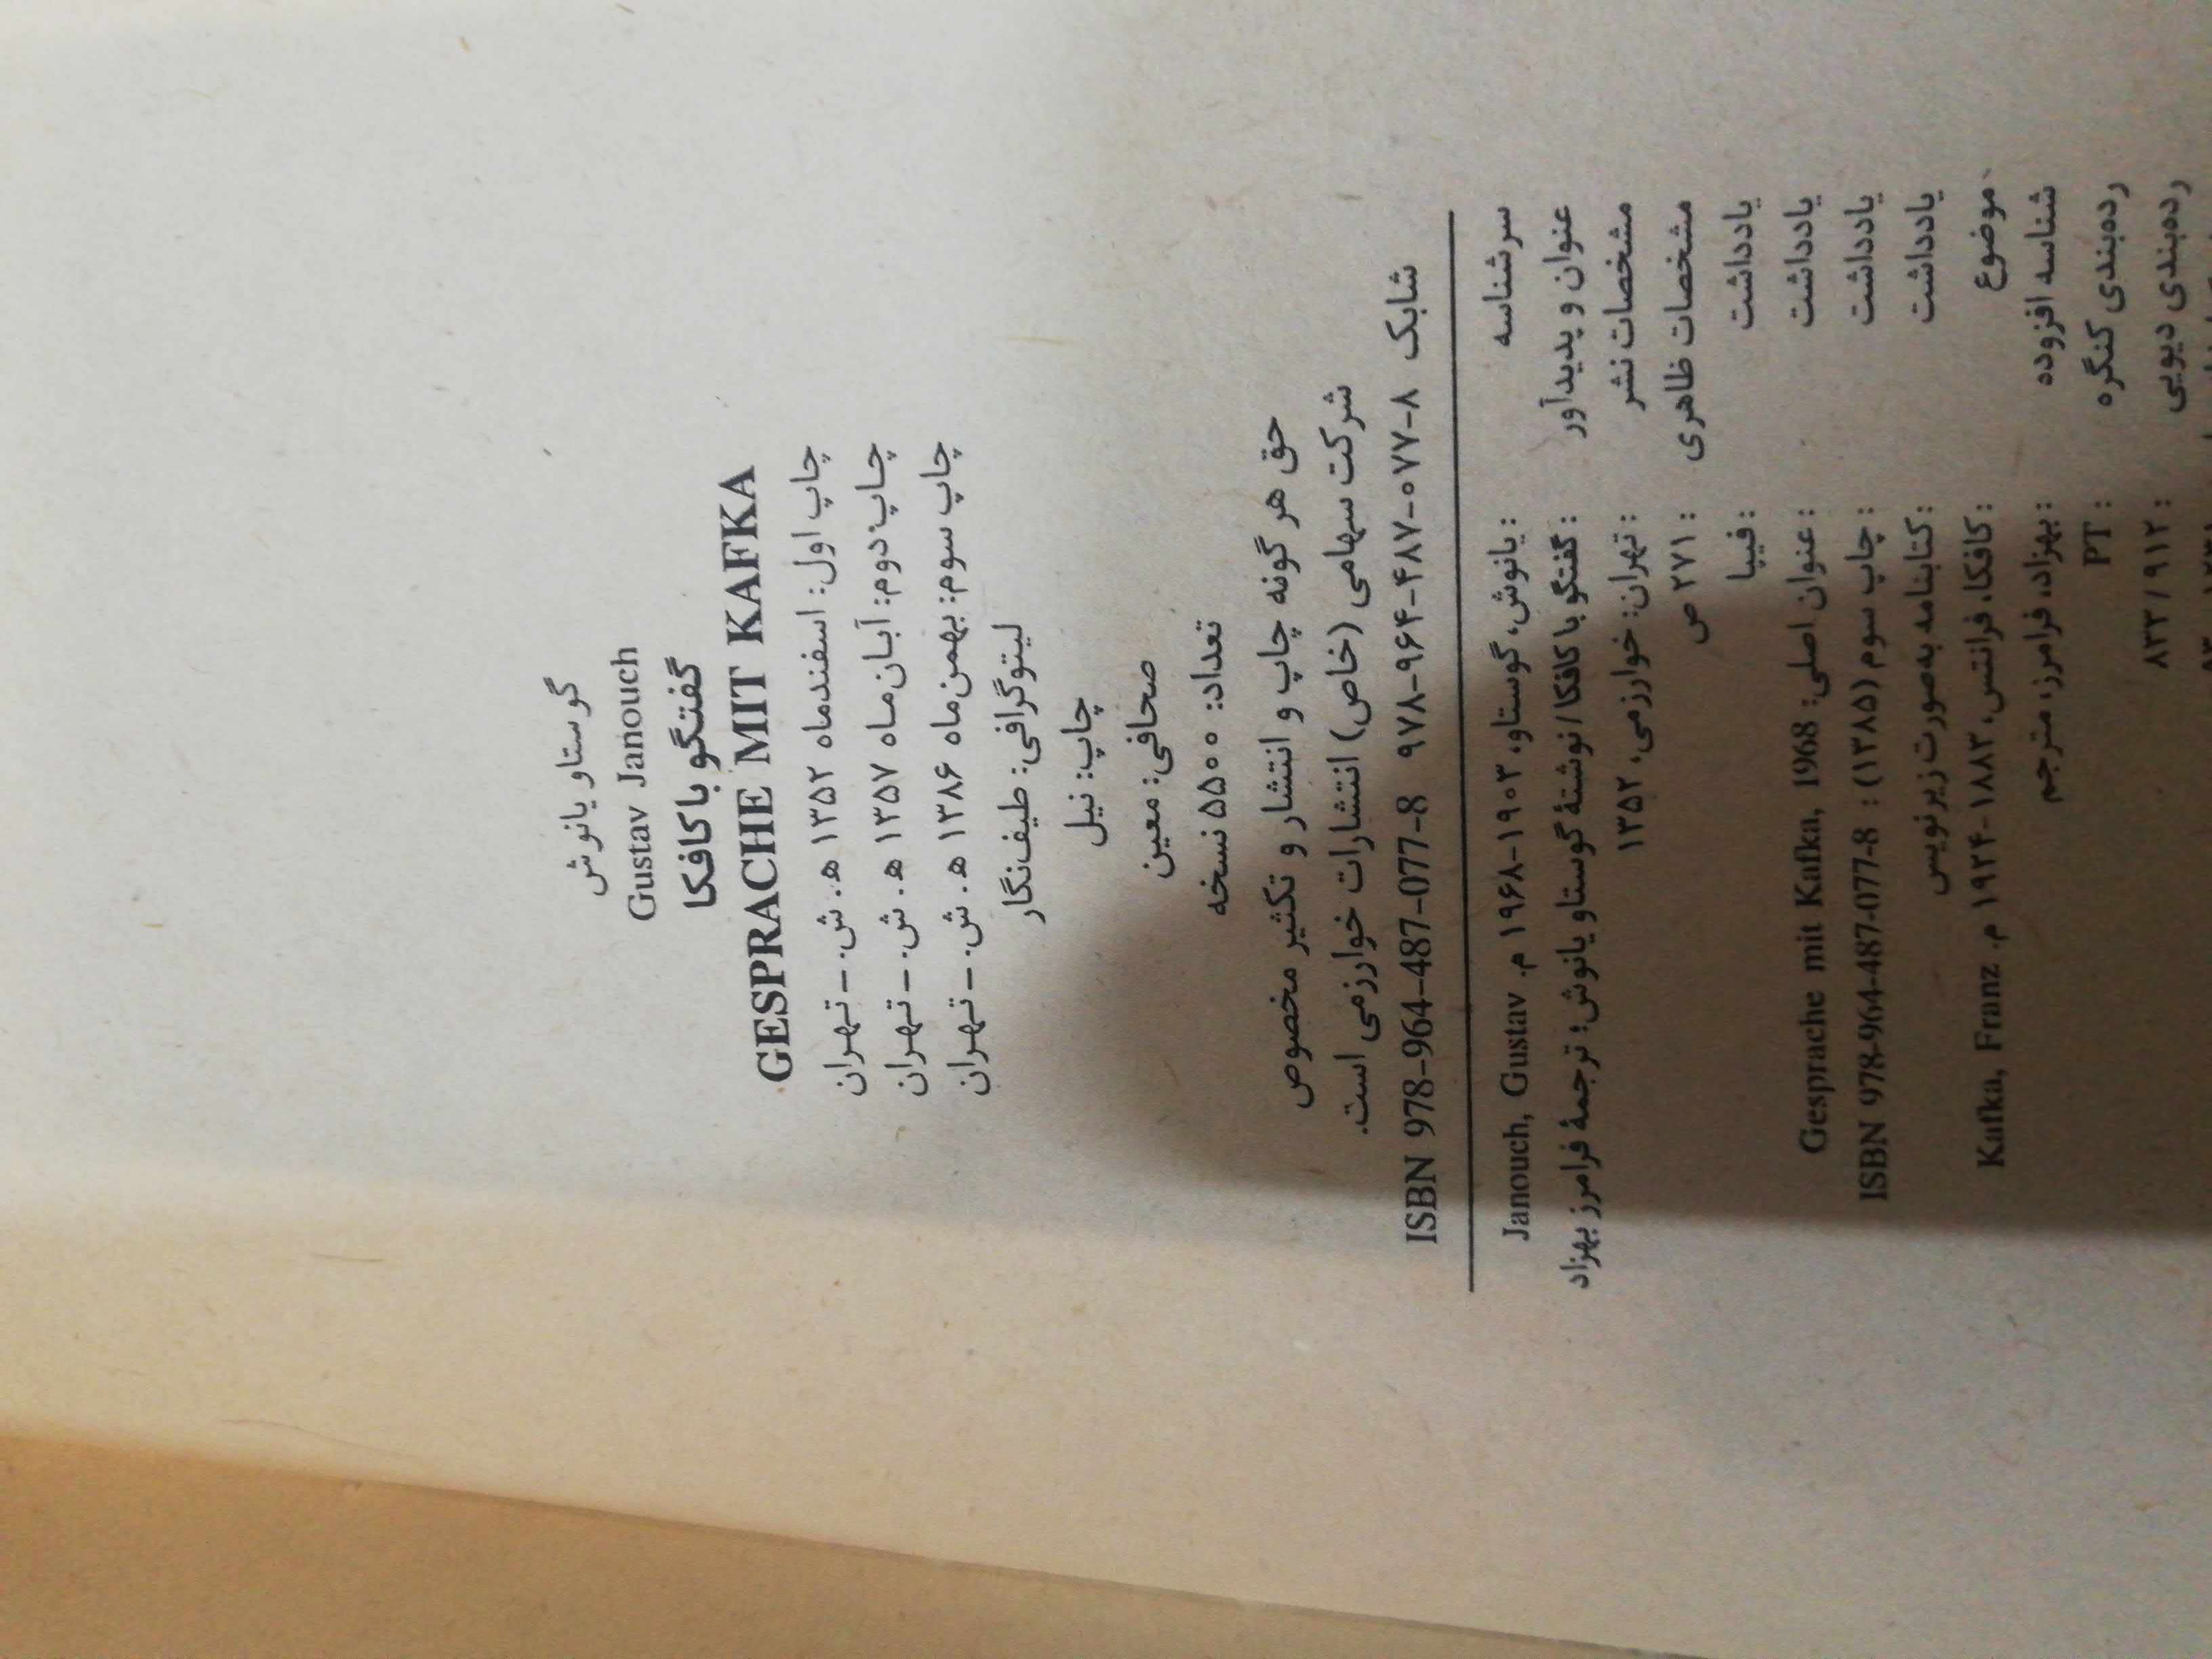 گوستاو یانوش
Gustav Janouch
گفتگو با کافکا
GESPRACHE MIT KAFKA
چاپ اول: اسفندماه ۱۳۵۲ ه‍. ش. – تهران
چاپ دوم: آبان‌ماه ۱۳۵۷ ه‍. ش. – تهران
چاپ سوم: بهمن‌ماه ۱۳۸۶ ه‍. ش. – تهران
لیتوگرافی: طیف‌نگار
چاپ: نیل
صحافی: معین
تعداد: ۵۵۰۰ نسخه
حق هر گونه چاپ و انتشار و تکثیر مخصوص
شرکت سهامی (خاص) انتشارات خوارزمی است.
شابک ۸-۰۷۷-۴۸۷-۹۶۴-۹۷۸ ISBN 978-964-487-077-8
سرشناسه : یانوش، گوستاو، ۱۹۰۳-۱۹۶۸ م. Janouch, Gustav
عنوان و پدیدآور : گفتگو با کافکا / نوشتهٔ گوستاو یانوش؛ ترجمهٔ فرامرز بهزاد
مشخصات نشر : تهران: خوارزمی، ۱۳۵۲
مشخصات ظاهری : ۲۷۱ ص
یادداشت : فیپا
یادداشت : عنوان اصلی: Gesprache mit Kafka, 1968
یادداشت : چاپ سوم (۱۳۸۵) : ISBN 978-964-487-077-8
یادداشت : کتابنامه به‌صورت زیرنویس
موضوع : کافکا، فرانتس، ۱۸۸۳-۱۹۲۴ م. Kafka, Franz
شناسه افزوده : بهزاد، فرامرز، مترجم
رده‌بندی کنگره : PT
رده‌بندی دیویی : ۸۳۳/۹۱۲